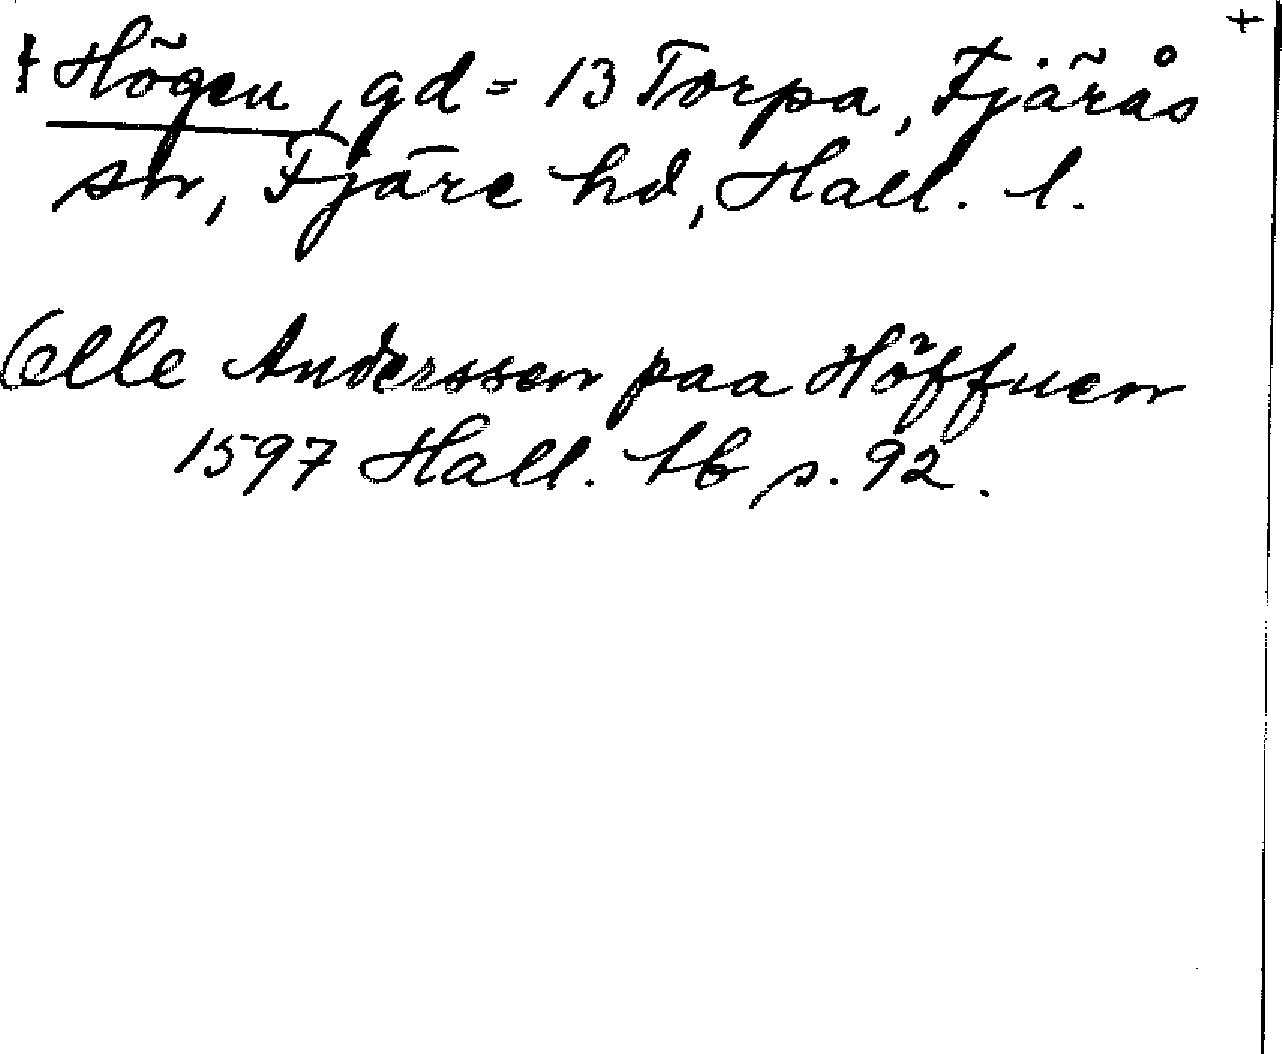 +
† Högen, gd = 13 Torpa, Fjärås
sn, Fjäre hd, Hall. l.
Oelle Anderssen paa Höffuen
1597 Hall. tb s. 92.